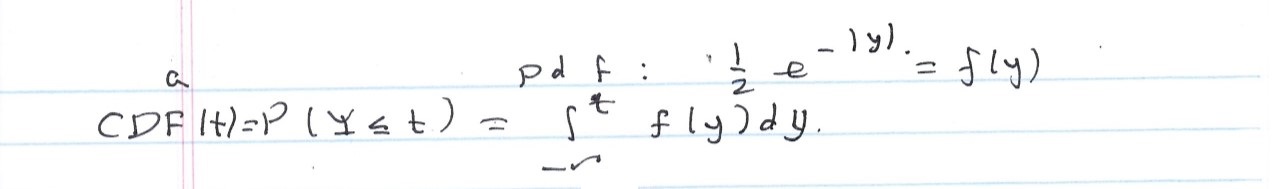 pdf: 1/2 e^{-|y|} = f(y)
a
CDF(t)=P(Y≤t) = ∫_{-∞}^{t} f(y)dy.